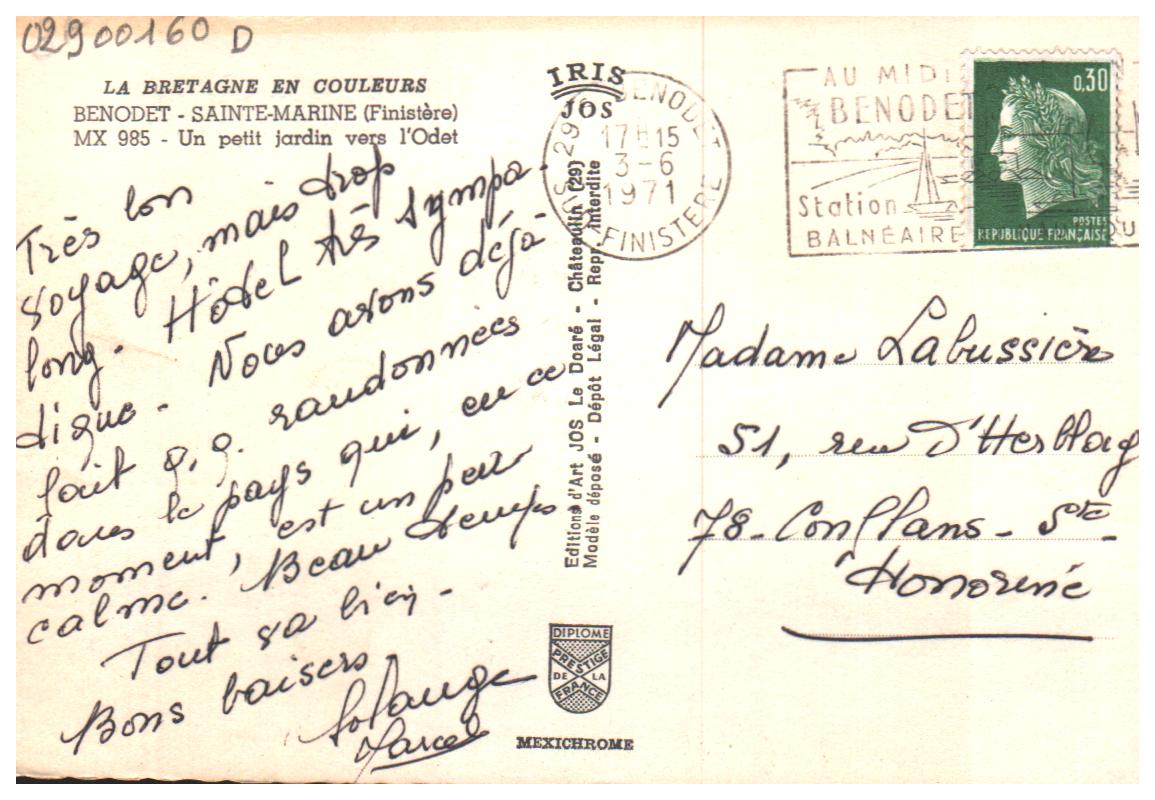 02900160 D
LA BRETAGNE EN COULEURS
BENODET - SAINTE-MARINE (Finistère)
MX 985 - Un petit jardin vers l'Odet
Très bon
voyage, mais trop
long. Hôtel très sympa-
tique. Nous avons déjà
fait q.q. randonnées
dans le pays qui, en ce
moment, est un peu
calme. Beau temps
Tout va bien.
Bons baisers
Solange
Marcel
IRIS
JOS
Editions d'Art JOS Le Doaré - Châteaulin (29)
Modèle déposé - Dépôt Légal - Repr. Interdite
DIPLOME
PRESTIGE
DE LA
FRANCE
MEXICHROME
BENODET
17H15
3-6
1971
FINISTERE
AU MIDI
BENODET
Station
BALNÉAIRE
0,30
POSTES
REPUBLIQUE FRANÇAISE
Madame Labussière
51, rue D'Herblay
78-Conflans-Ste-
Honorine